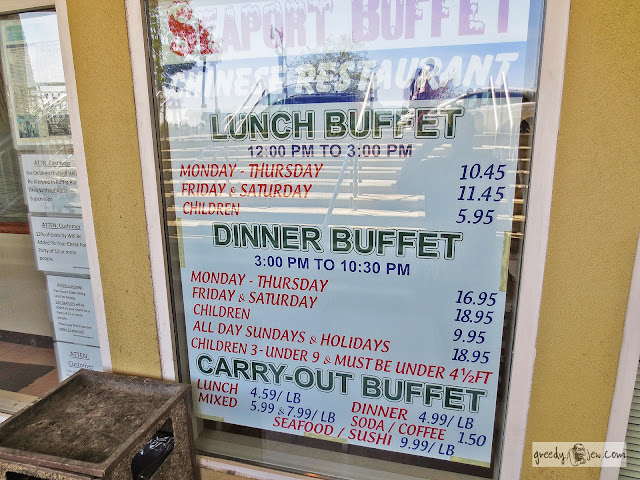 SEAPORT BUFFET
CHINESE RESTAURANT
LUNCH BUFFET
12:00 PM TO 3:00 PM
MONDAY - THURSDAY 10.45
FRIDAY & SATURDAY 11.45
CHILDREN 5.95
DINNER BUFFET
3:00 PM TO 10:30 PM
MONDAY - THURSDAY 16.95
FRIDAY & SATURDAY 18.95
CHILDREN 9.95
ALL DAY SUNDAYS & HOLIDAYS 18.95
CHILDREN 3 - UNDER 9 & MUST BE UNDER 4½FT
CARRY-OUT BUFFET
LUNCH 4.59/ LB DINNER 4.99/ LB
MIXED 5.99 & 7.99/ LB SODA / COFFEE 1.50
SEAFOOD / SUSHI 9.99/ LB
ATTN: Customer
ATTN: Customer
Added To Your Check For
Party of
people.
ATTN:
Customer
greedyjew.com